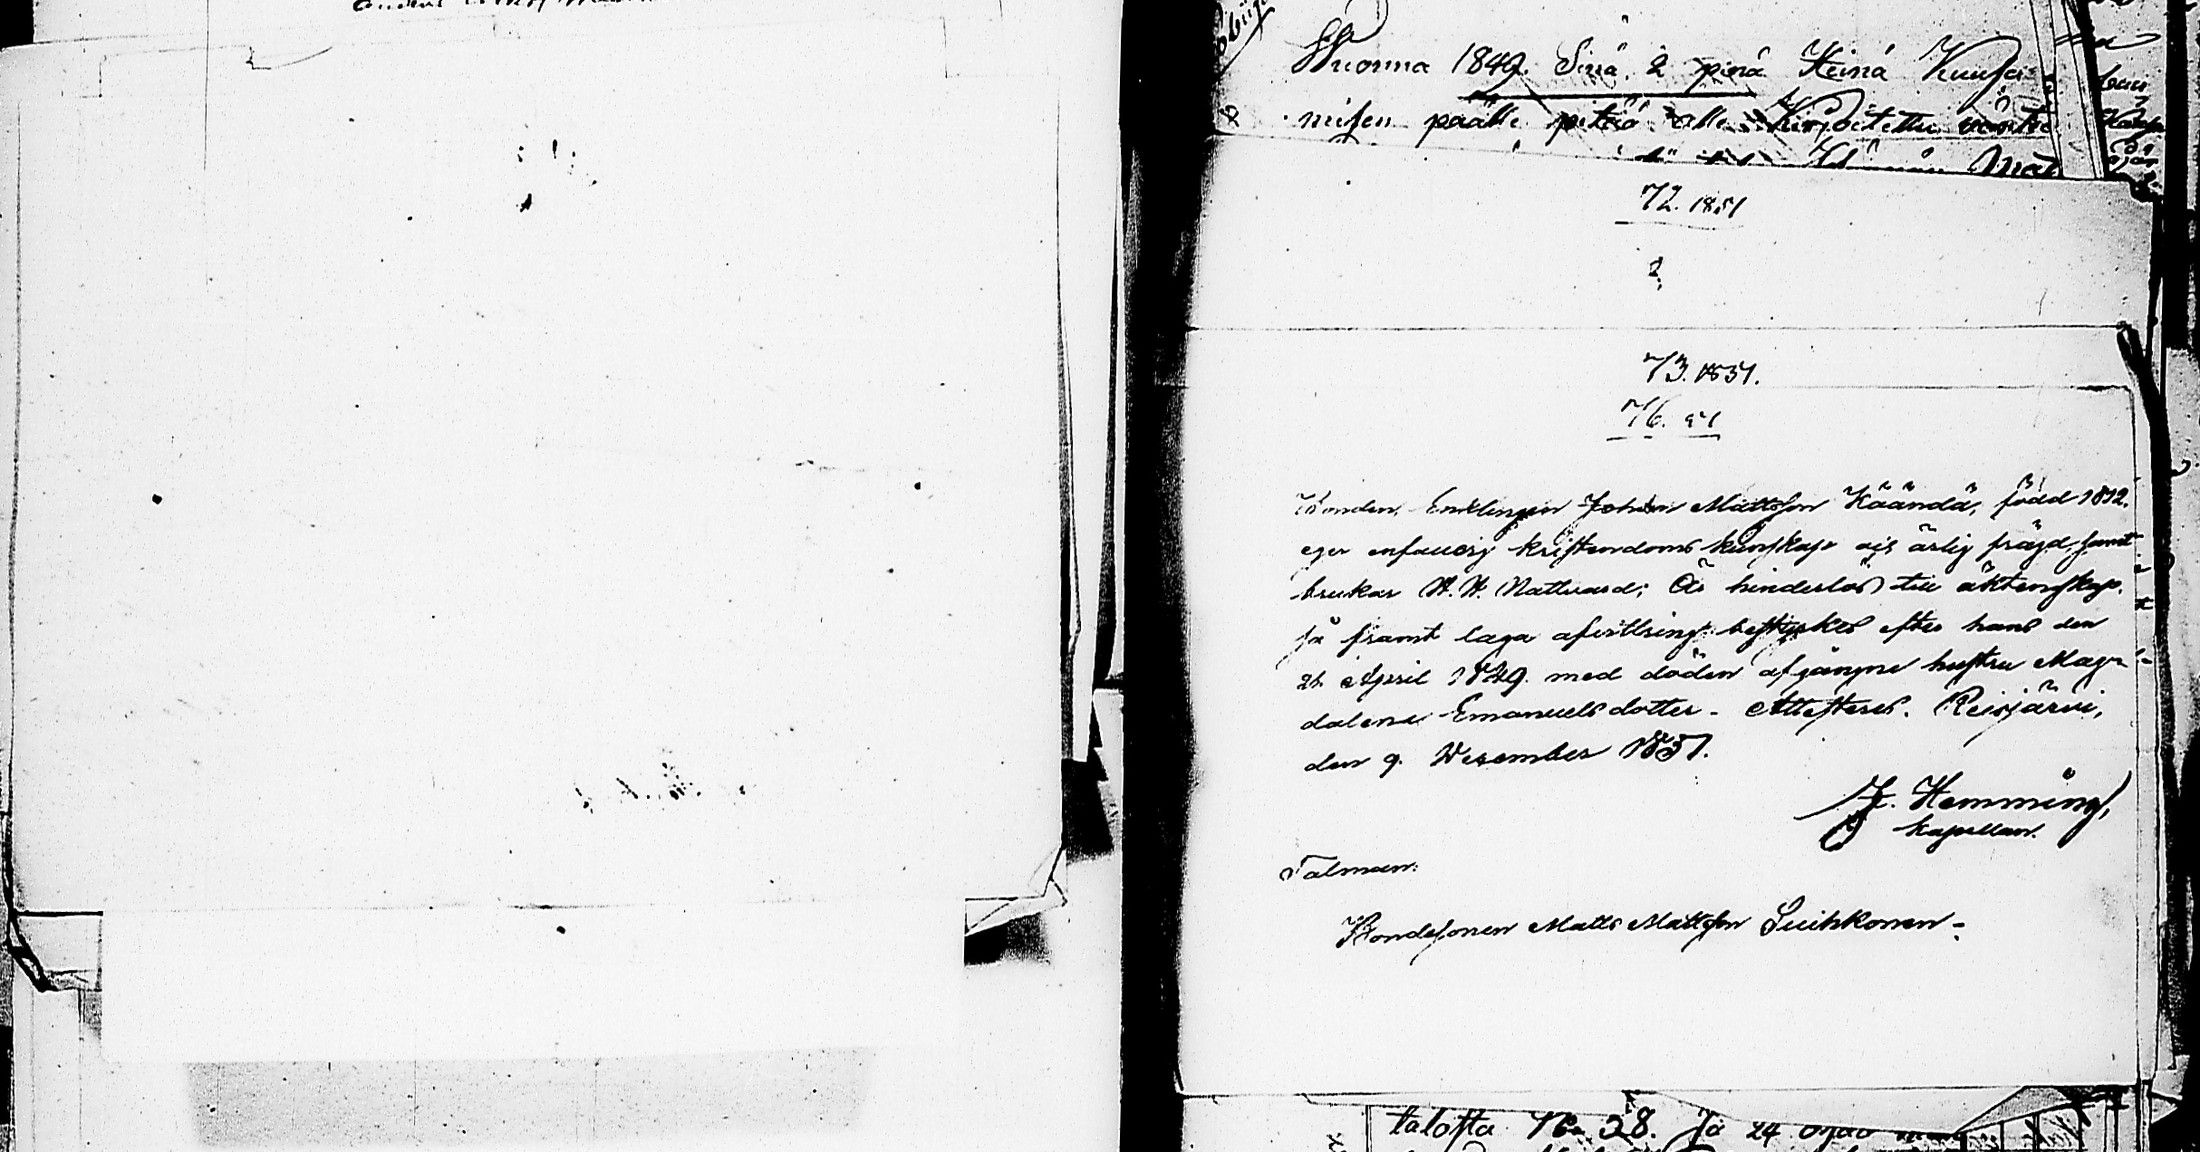 Wuonna 1849. Sinä 2 p:nä Heinä Kuusa
misen päälle pitää alle Kirjoitettu
72. 1851
2,
73. 1851.
76. 51
Bonden, Enklingen Johan Mattsson Käändä, född 1812.
eger enfaldig kristendoms kunskap och ärlig frägd, samt
brukar H. H. Nattvard; Är hinderlös till äktenskap,
så framt laga afvittring bestyrkes efter hans den
21 April 1849 med döden afgångne hustru Mag-
dalena Emanuelsdotter. Attesteras. Reisjärvi,
den 9. December 1851.
F. Hemming,
Kapellan.
Talman:
Bondesonen Matts Mattsson Suihkonen.
talosta No 38. Ja 24